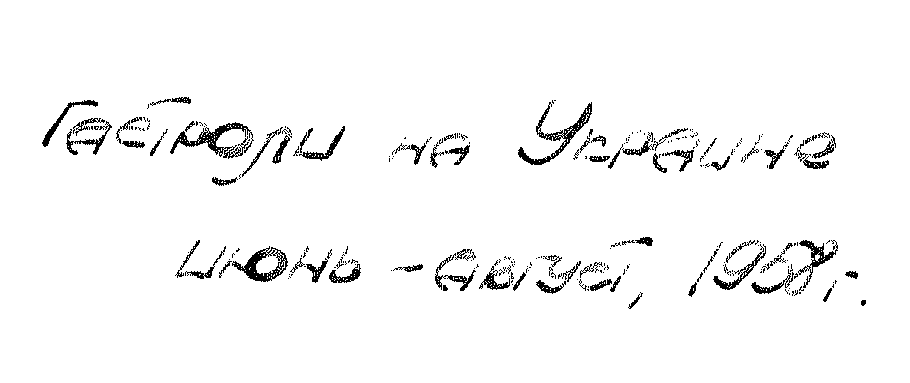 Гастроли на Украине
июнь - август, 1958 г.